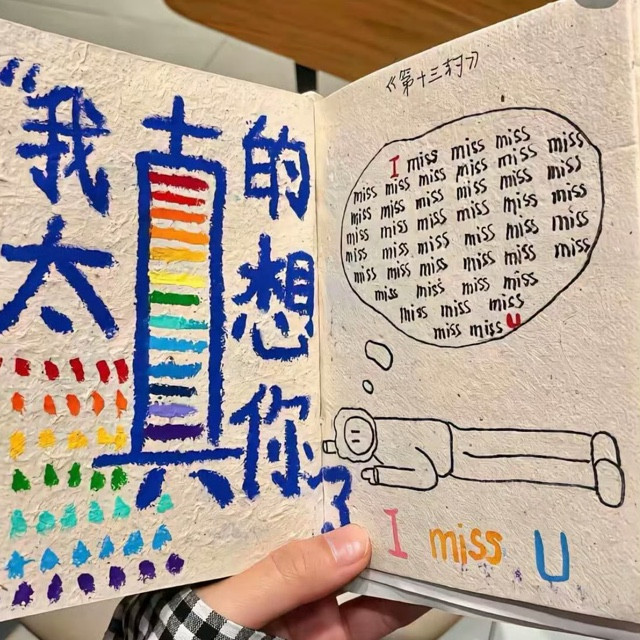 “我真的
太想
你了
《第十三村》
I miss miss miss miss
miss miss miss miss miss miss
miss miss miss miss miss miss
miss miss miss miss miss miss
miss miss miss miss miss miss
miss miss miss miss miss
miss miss miss miss
miss miss miss
miss miss U
I miss U